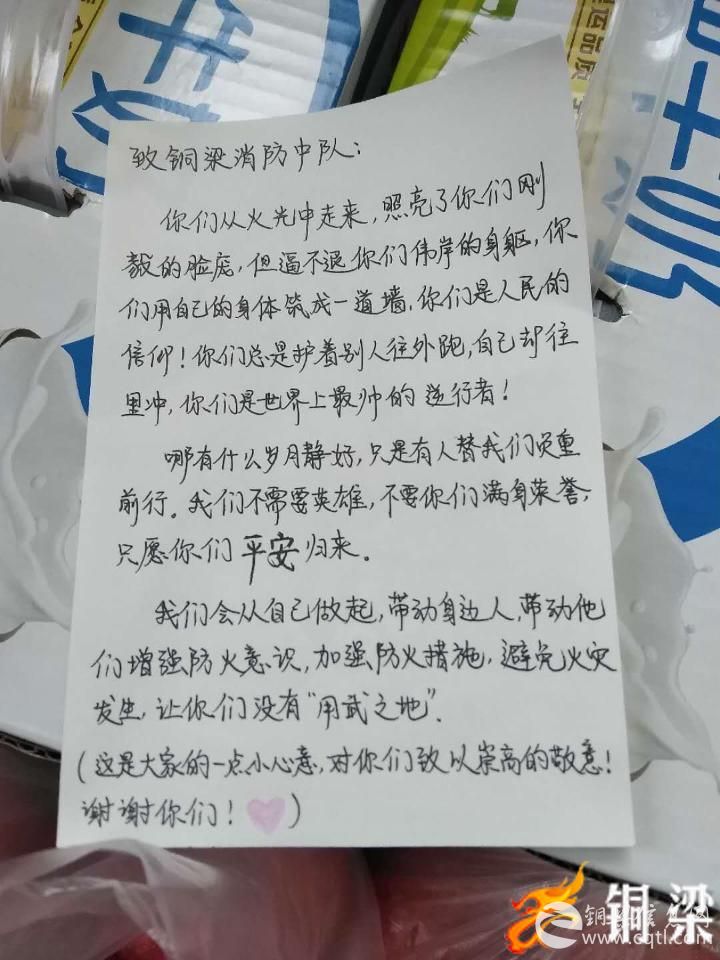 致铜梁消防中队:
你们从火光中走来,照亮了你们刚
毅的脸庞,但逼不退你们伟岸的身躯,你
们用自己的身体筑成一道墙,你们是人民的
信仰!你们总是护着别人往外跑,自己却往
里冲,你们是世界上最帅的逆行者!
哪有什么岁月静好,只是有人替我们负重
前行。我们不需要英雄,不要你们满身荣誉,
只愿你们平安归来。
我们会从自己做起,带动身边人,带动他
们增强防火意识,加强防火措施,避免火灾
发生,让你们没有“用武之地”.
(这是大家的一点小心意,对你们致以崇高的敬意!
谢谢你们!)
牛奶
牛奶
品质
铜梁
www.cqtl.com